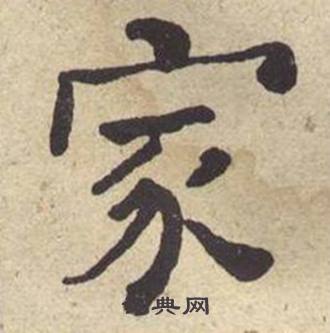 家
典网